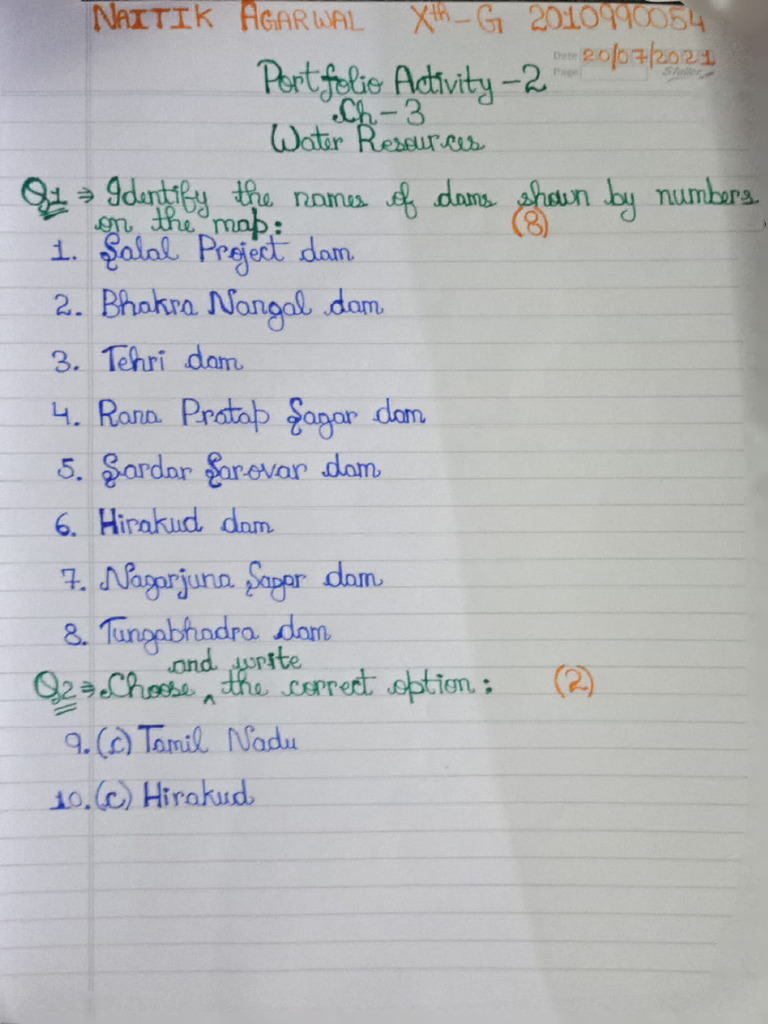 NAITIK AGARWAL Xth-G 2010990054
Date 20/07/2021
Page
Portfolio Activity-2
Ch-3
Water Resources
Q1⇒ Identify the names of dams shown by numbers
on the map: (8)
1. Salal Project dam
2. Bhakra Nangal dam
3. Tehri dam
4. Rana Pratap Sagar dam
5. Sardar Sarovar dam
6. Hirakud dam
7. Nagarjuna Sagar dam
8. Tungabhadra dam
and write
Q2⇒ Choose ^ the correct option: (2)
9. (c) Tamil Nadu
10. (c) Hirakud